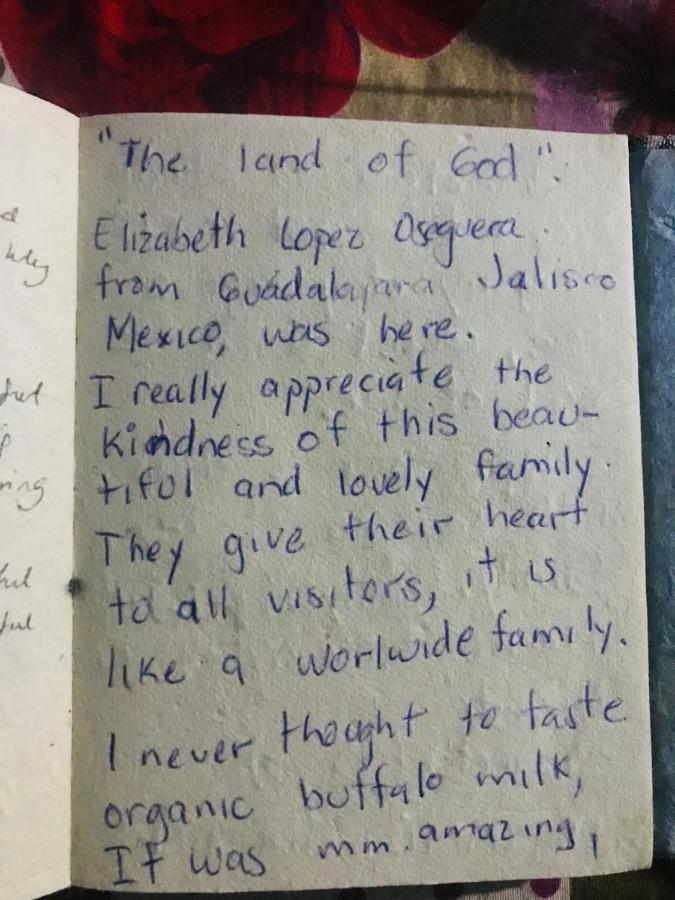 "The land of God".
Elizabeth Lopez Oseguera.
from Guadalajara Jalisco
Mexico, was here.
I really appreciate the
Kindness of this beau-
tiful and lovely family.
They give their heart
to all visitors, it is
like a worlwide family.
I never thought to taste
organic buffalo milk,
It was mm.amazing,